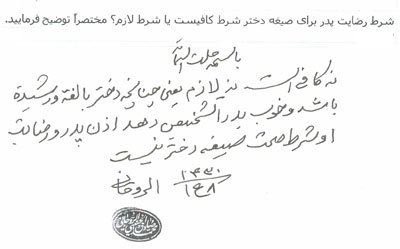 شرط رضایت پدر برای صیغه دختر شرط کافیست یا شرط لازم؟ مختصراً توضیح فرمایید.
باسمه جلت اسمائه
نه کافی است نه لازم یعنی چنانچه دختر بالغة و رشیدة
باشد و خوب و بد را تشخیص دهد اذن پدر و رضایت
او شرط صحت صیغه دختر نیست
۱۴۳۰
۱ع۸
الروحانی